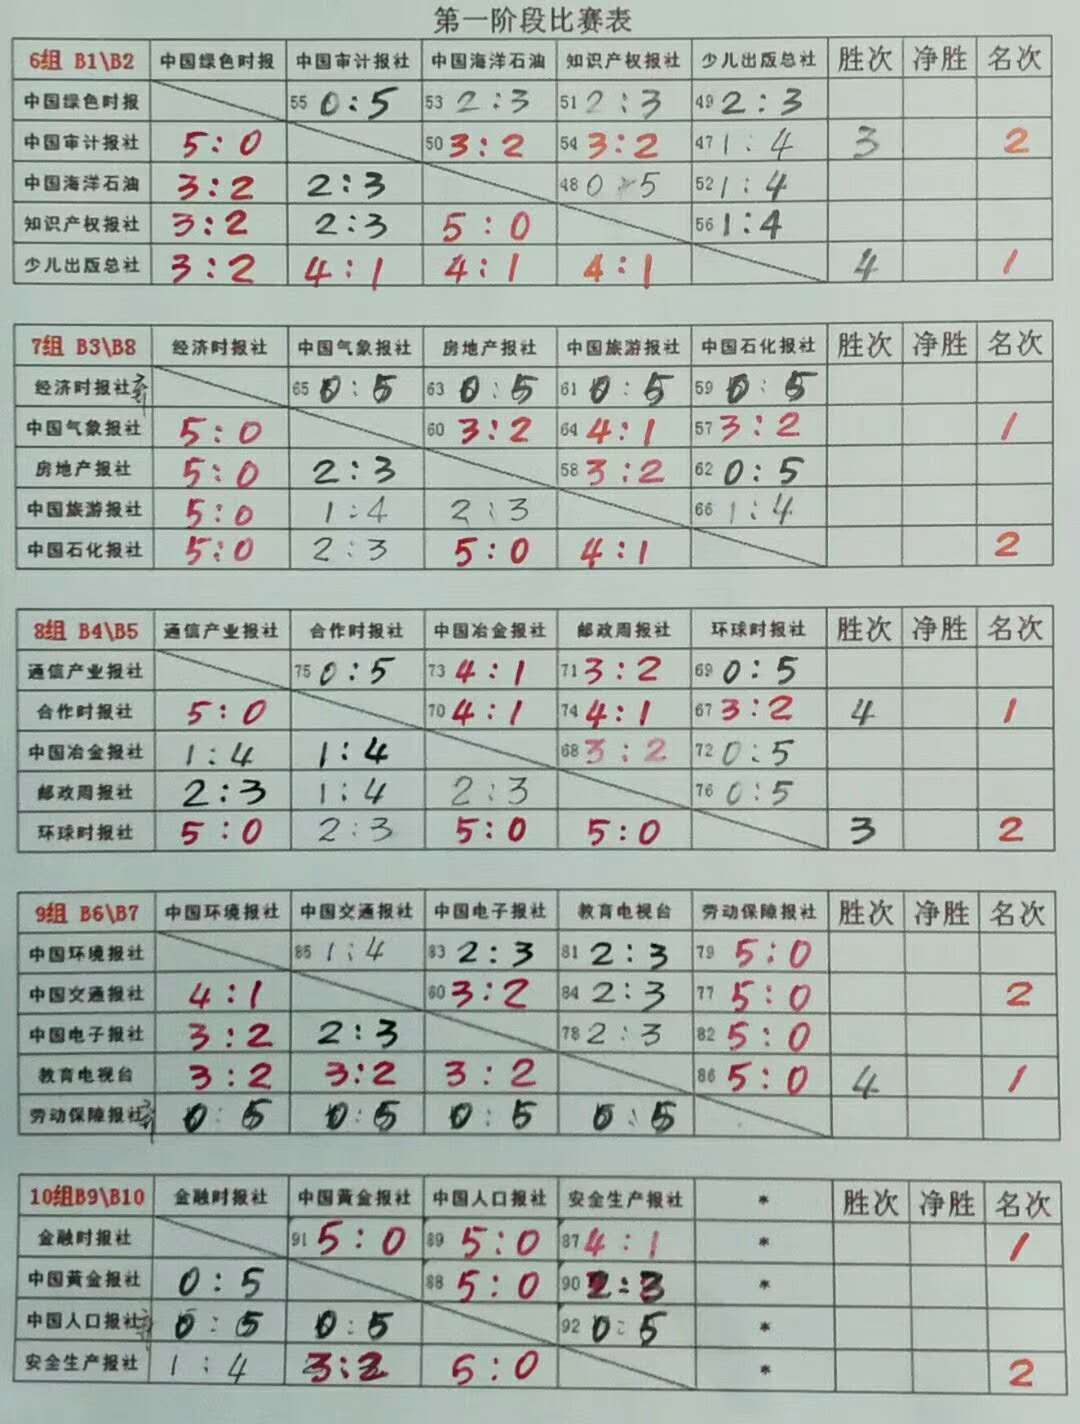 第一阶段比赛表
6组 B1\B2 中国绿色时报 中国审计报社 中国海洋石油 知识产权报社 少儿出版总社 胜次 净胜 名次
中国绿色时报 55 0:5 53 2:3 51 2:3 49 2:3
中国审计报社 5:0 50 3:2 54 3:2 47 1:4 3 2
中国海洋石油 3:2 2:3 48 0:5 52 1:4
知识产权报社 3:2 2:3 5:0 56 1:4
少儿出版总社 3:2 4:1 4:1 4:1 4 1
7组 B3\B8 经济时报社 中国气象报社 房地产报社 中国旅游报社 中国石化报社 胜次 净胜 名次
经济时报社弃 65 0:5 63 0:5 61 0:5 59 0:5
中国气象报社 5:0 60 3:2 64 4:1 57 3:2 1
房地产报社 5:0 2:3 58 3:2 62 0:5
中国旅游报社 5:0 1:4 2:3 66 1:4
中国石化报社 5:0 2:3 5:0 4:1 2
8组 B4\B5 通信产业报社 合作时报社 中国冶金报社 邮政周报社 环球时报社 胜次 净胜 名次
通信产业报社 75 0:5 73 4:1 71 3:2 69 0:5
合作时报社 5:0 70 4:1 74 4:1 67 3:2 4 1
中国冶金报社 1:4 1:4 68 3:2 72 0:5
邮政周报社 2:3 1:4 2:3 76 0:5
环球时报社 5:0 2:3 5:0 5:0 3 2
9组 B6\B7 中国环境报社 中国交通报社 中国电子报社 教育电视台 劳动保障报社 胜次 净胜 名次
中国环境报社 85 1:4 83 2:3 81 2:3 79 5:0
中国交通报社 4:1 80 3:2 84 2:3 77 5:0 2
中国电子报社 3:2 2:3 78 2:3 82 5:0
教育电视台 3:2 3:2 3:2 86 5:0 4 1
劳动保障报社弃 0:5 0:5 0:5 0:5
10组B9\B10 金融时报社 中国黄金报社 中国人口报社 安全生产报社 * 胜次 净胜 名次
金融时报社 91 5:0 89 5:0 87 4:1 * 1
中国黄金报社 0:5 88 5:0 90 2:3 *
中国人口报社弃 0:5 0:5 92 0:5 *
安全生产报社 1:4 3:2 5:0 * 2